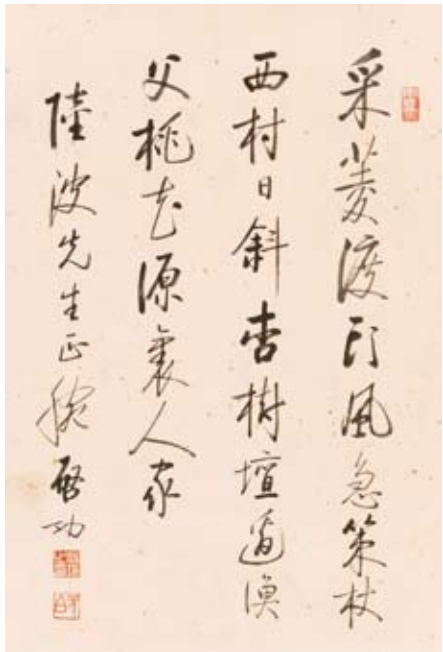 采菱渡頭風急策杖
西村日斜杏樹壇邊漁
父桃花源裏人家
陸波先生正腕 啓功